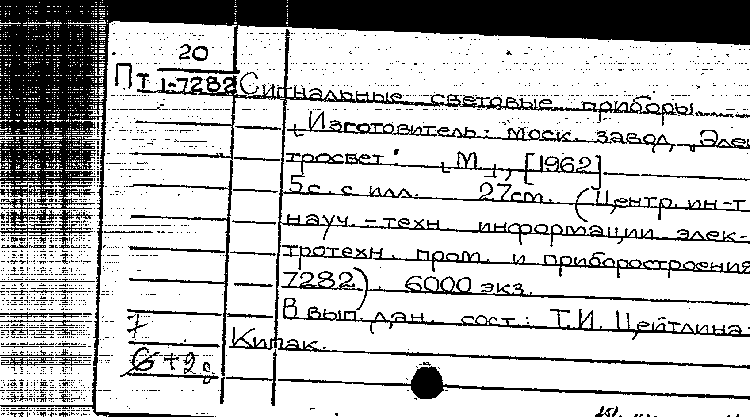 20
Пт 1-7282 Сигнальные световые приборы.
Изготовитель: моск. завод „Элек
тросвет". М., [1962].
5 с. с илл. 27 см. (Центр. ин-т
науч.-техн. информации элек-
тротехн. пром. и приборостроения
7282). 6000 экз.
В вып. дан. сост.: Т.И. Цейтлина
Кипак.